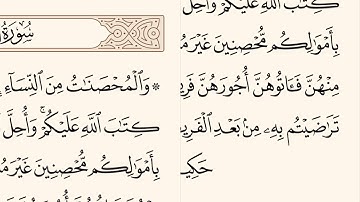 كِتَٰبَ ٱللَّهِ عَلَيْكُمْ وَأُحِلَّ
بِأَمْوَٰلِكُم مُّحْصِنِينَ غَيْرَ
مِنْهُنَّ فَـَٔاتُوهُنَّ أُجُورَهُنَّ
تَرَٰضَيْتُم بِهِۦ مِنۢ بَعْدِ
سُورَةُ
وَٱلْمُحْصَنَٰتُ مِنَ ٱلنِّسَآءِ
كِتَٰبَ ٱللَّهِ عَلَيْكُمْ ۚ وَأُحِلَّ
بِأَمْوَٰلِكُم مُّحْصِنِينَ غَيْرَ